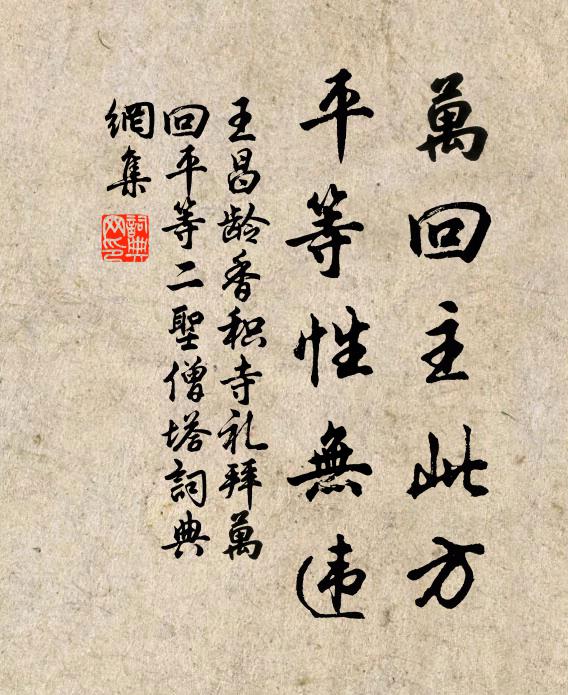 萬回主此方
平等性無违
王昌龄香积寺礼拜萬
回平等二聖僧塔詞典
網集
詞典网印